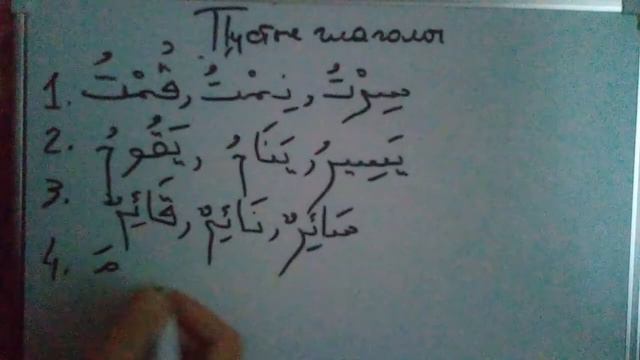 Пустые глаголы
1. سِرْتُ, نِمْتُ, قُمْتُ
2. يَسِيرُ, يَنَامُ, يَقُومُ
3. سَائِرٌ, نَائِمٌ, قَائِمٌ
4. مَ